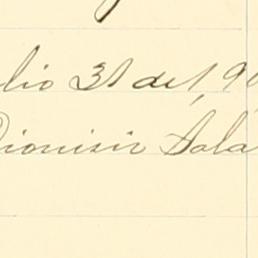 lio 31 de 190
Dionisir Sala